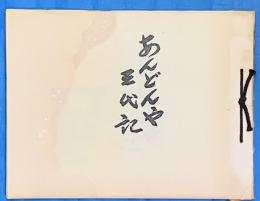 あんどんや
三代記